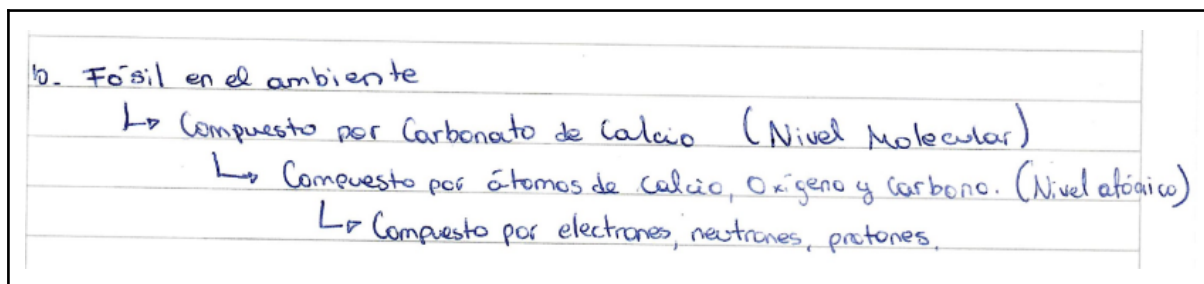 b. Fósil en el ambiente
↳ Compuesto por Carbonato de Calcio (Nivel Molecular)
↳ Compuesto por átomos de calcio, Oxígeno y carbono. (Nivel atómico)
↳ Compuesto por electrones, neutrones, protones.